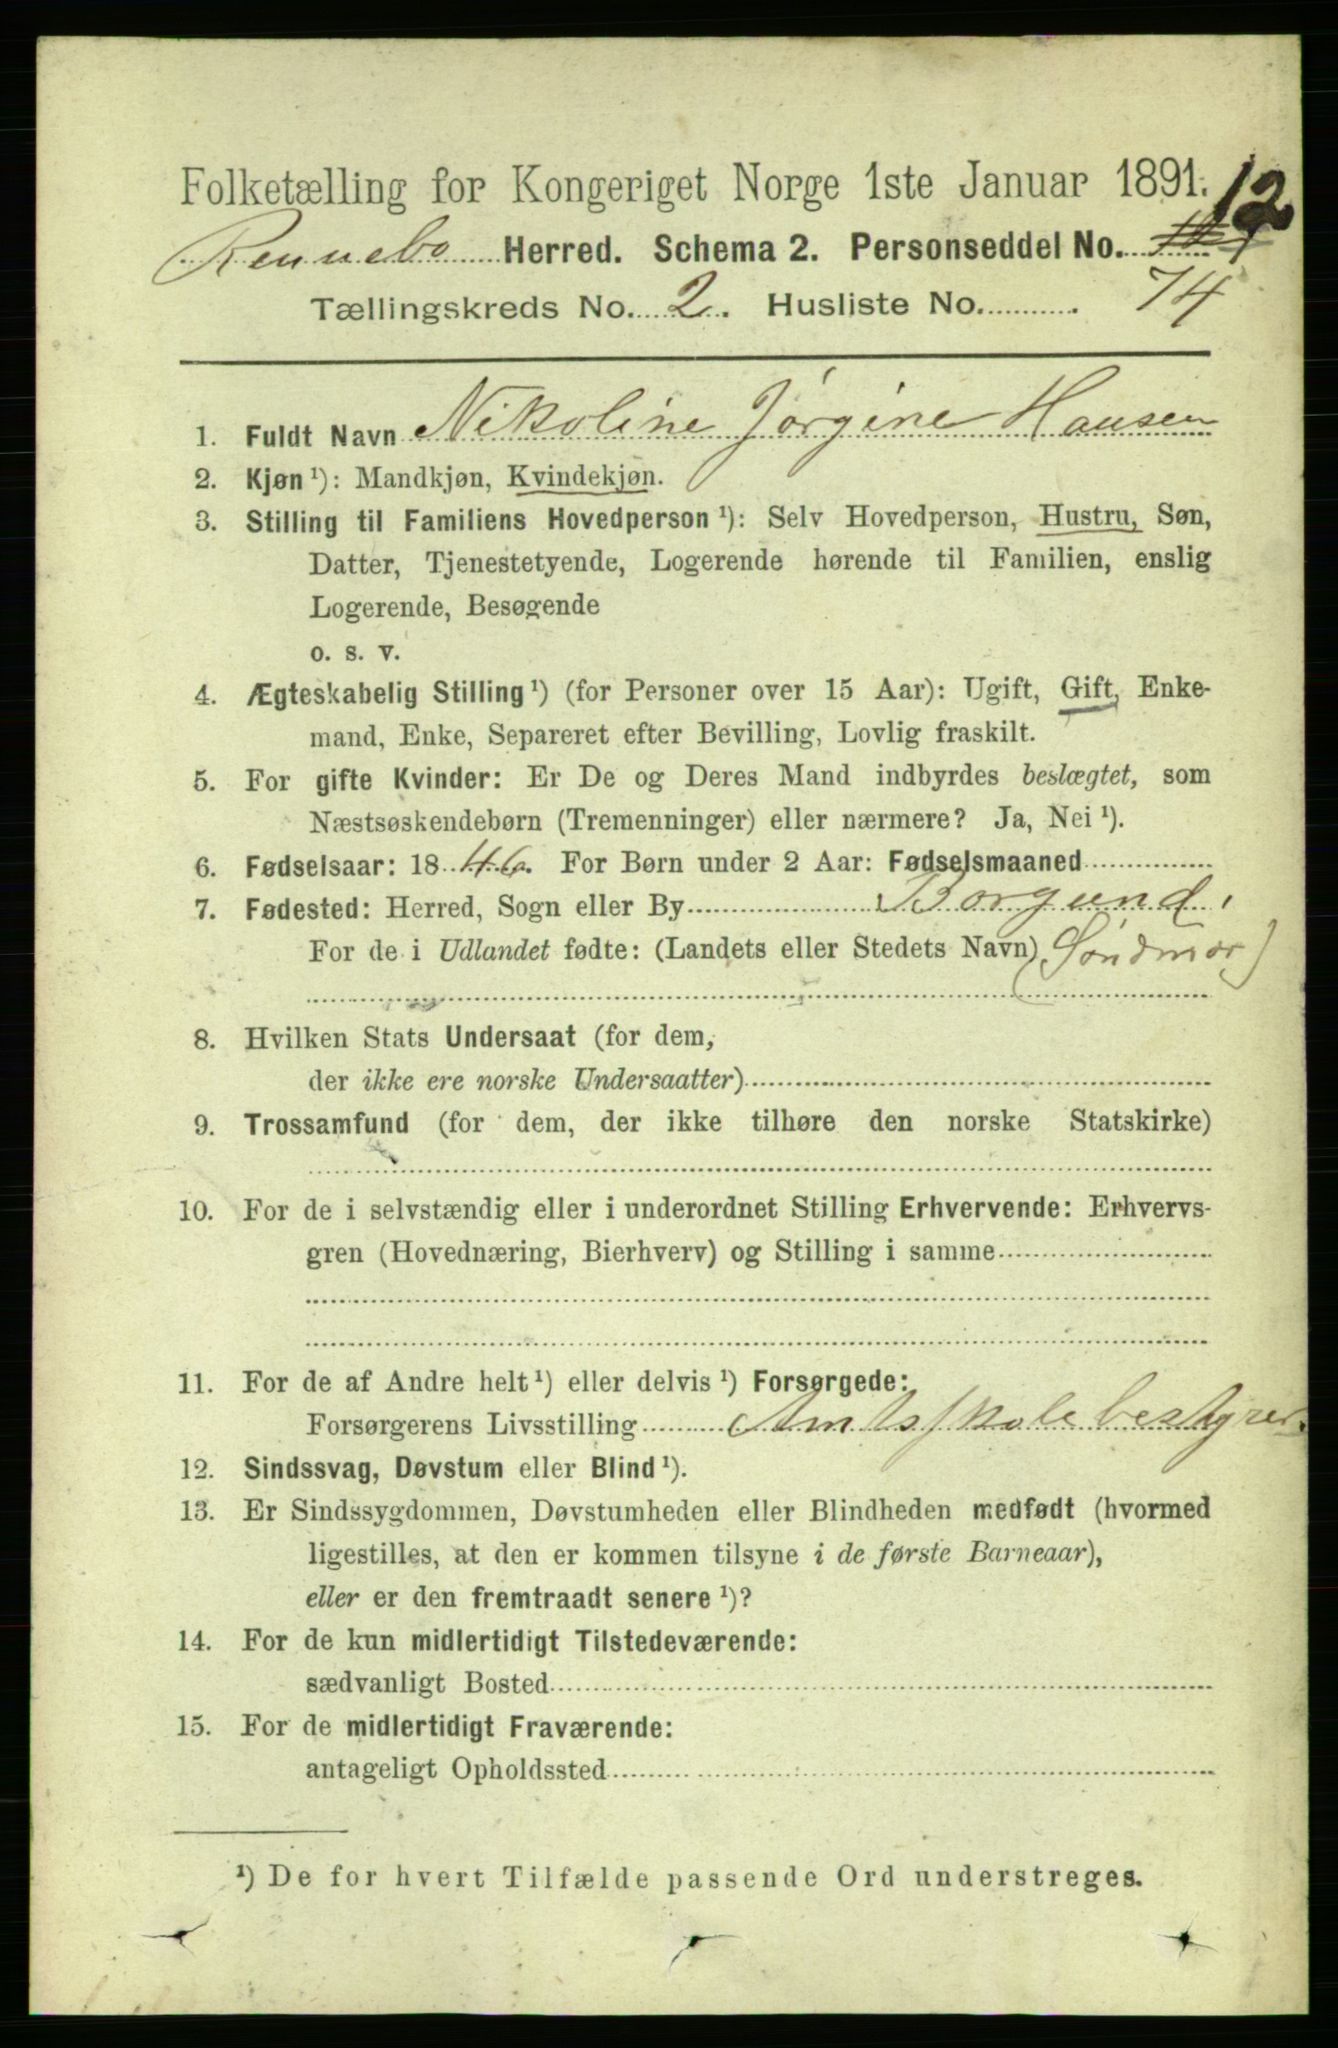 Folketælling for Kongeriget Norge 1ste Januar 1891.
Rennebo Herred. Schema 2. Personseddel No. 12
Tællingskreds No. 2. Husliste No. 74
1. Fuldt Navn Nikoline Jørgine Hansen
2. Kjøn ¹): Mandkjøn, Kvindekjøn.
3. Stilling til Familiens Hovedperson ¹): Selv Hovedperson, Hustru, Søn,
Datter, Tjenestetyende, Logerende hørende til Familien, enslig
Logerende, Besøgende
o. s. v.
4. Ægteskabelig Stilling ¹) (for Personer over 15 Aar): Ugift, Gift, Enke-
mand, Enke, Separeret efter Bevilling, Lovlig fraskilt.
5. For gifte Kvinder: Er De og Deres Mand indbyrdes beslægtet, som
Næstsøskendebørn (Tremenninger) eller nærmere? Ja, Nei ¹).
6. Fødselsaar: 1846. For Børn under 2 Aar: Fødselsmaaned
7. Fødested: Herred, Sogn eller By Borgund,
For de i Udlandet fødte: (Landets eller Stedets Navn) (Söndmør)
8. Hvilken Stats Undersaat (for dem,
der ikke ere norske Undersaatter)
9. Trossamfund (for dem, der ikke tilhøre den norske Statskirke)
10. For de i selvstændig eller i underordnet Stilling Erhvervende: Erhvervs-
gren (Hovednæring, Bierhverv) og Stilling i samme
11. For de af Andre helt ¹) eller delvis ¹) Forsørgede:
Forsørgerens Livsstilling Amtsskolebestyrer.
12. Sindssvag, Døvstum eller Blind ¹).
13. Er Sindssygdommen, Døvstumheden eller Blindheden medfødt (hvormed
ligestilles, at den er kommen tilsyne i de første Barneaar),
eller er den fremtraadt senere ¹)?
14. For de kun midlertidigt Tilstedeværende:
sædvanligt Bosted
15. For de midlertidigt Fraværende:
antageligt Opholdssted
¹) De for hvert Tilfælde passende Ord understreges.